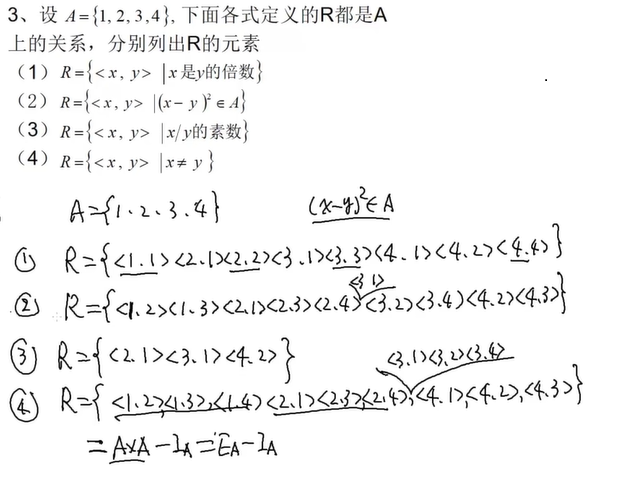 3、设 A={1, 2, 3, 4}, 下面各式定义的R都是A
上的关系，分别列出R的元素
（1）R={<x, y> |x是y的倍数}
（2）R={<x, y> |(x- y)² ∈ A}
（3）R={<x, y> |x/y的素数}
（4）R={<x, y> |x≠ y }
A={1、2、3、4} (x-y)²∈A
① R={<1.1><2.1><2.2><3.1><3.3><4.1><4.2><4.4>}
<3.1>
② R={<1.2><1.3><2.1><2.3><2.4><3.2><3.4><4.2><4.3>}
③ R={<2.1><3.1><4.2>}
<3.1><3.2><3.4>
④ R={<1.2>,<1.3>,<1.4><2.1><2.3><2.4>,<4.1>,<4.2>,<4.3>}
=A×A-I_A=E_A-I_A